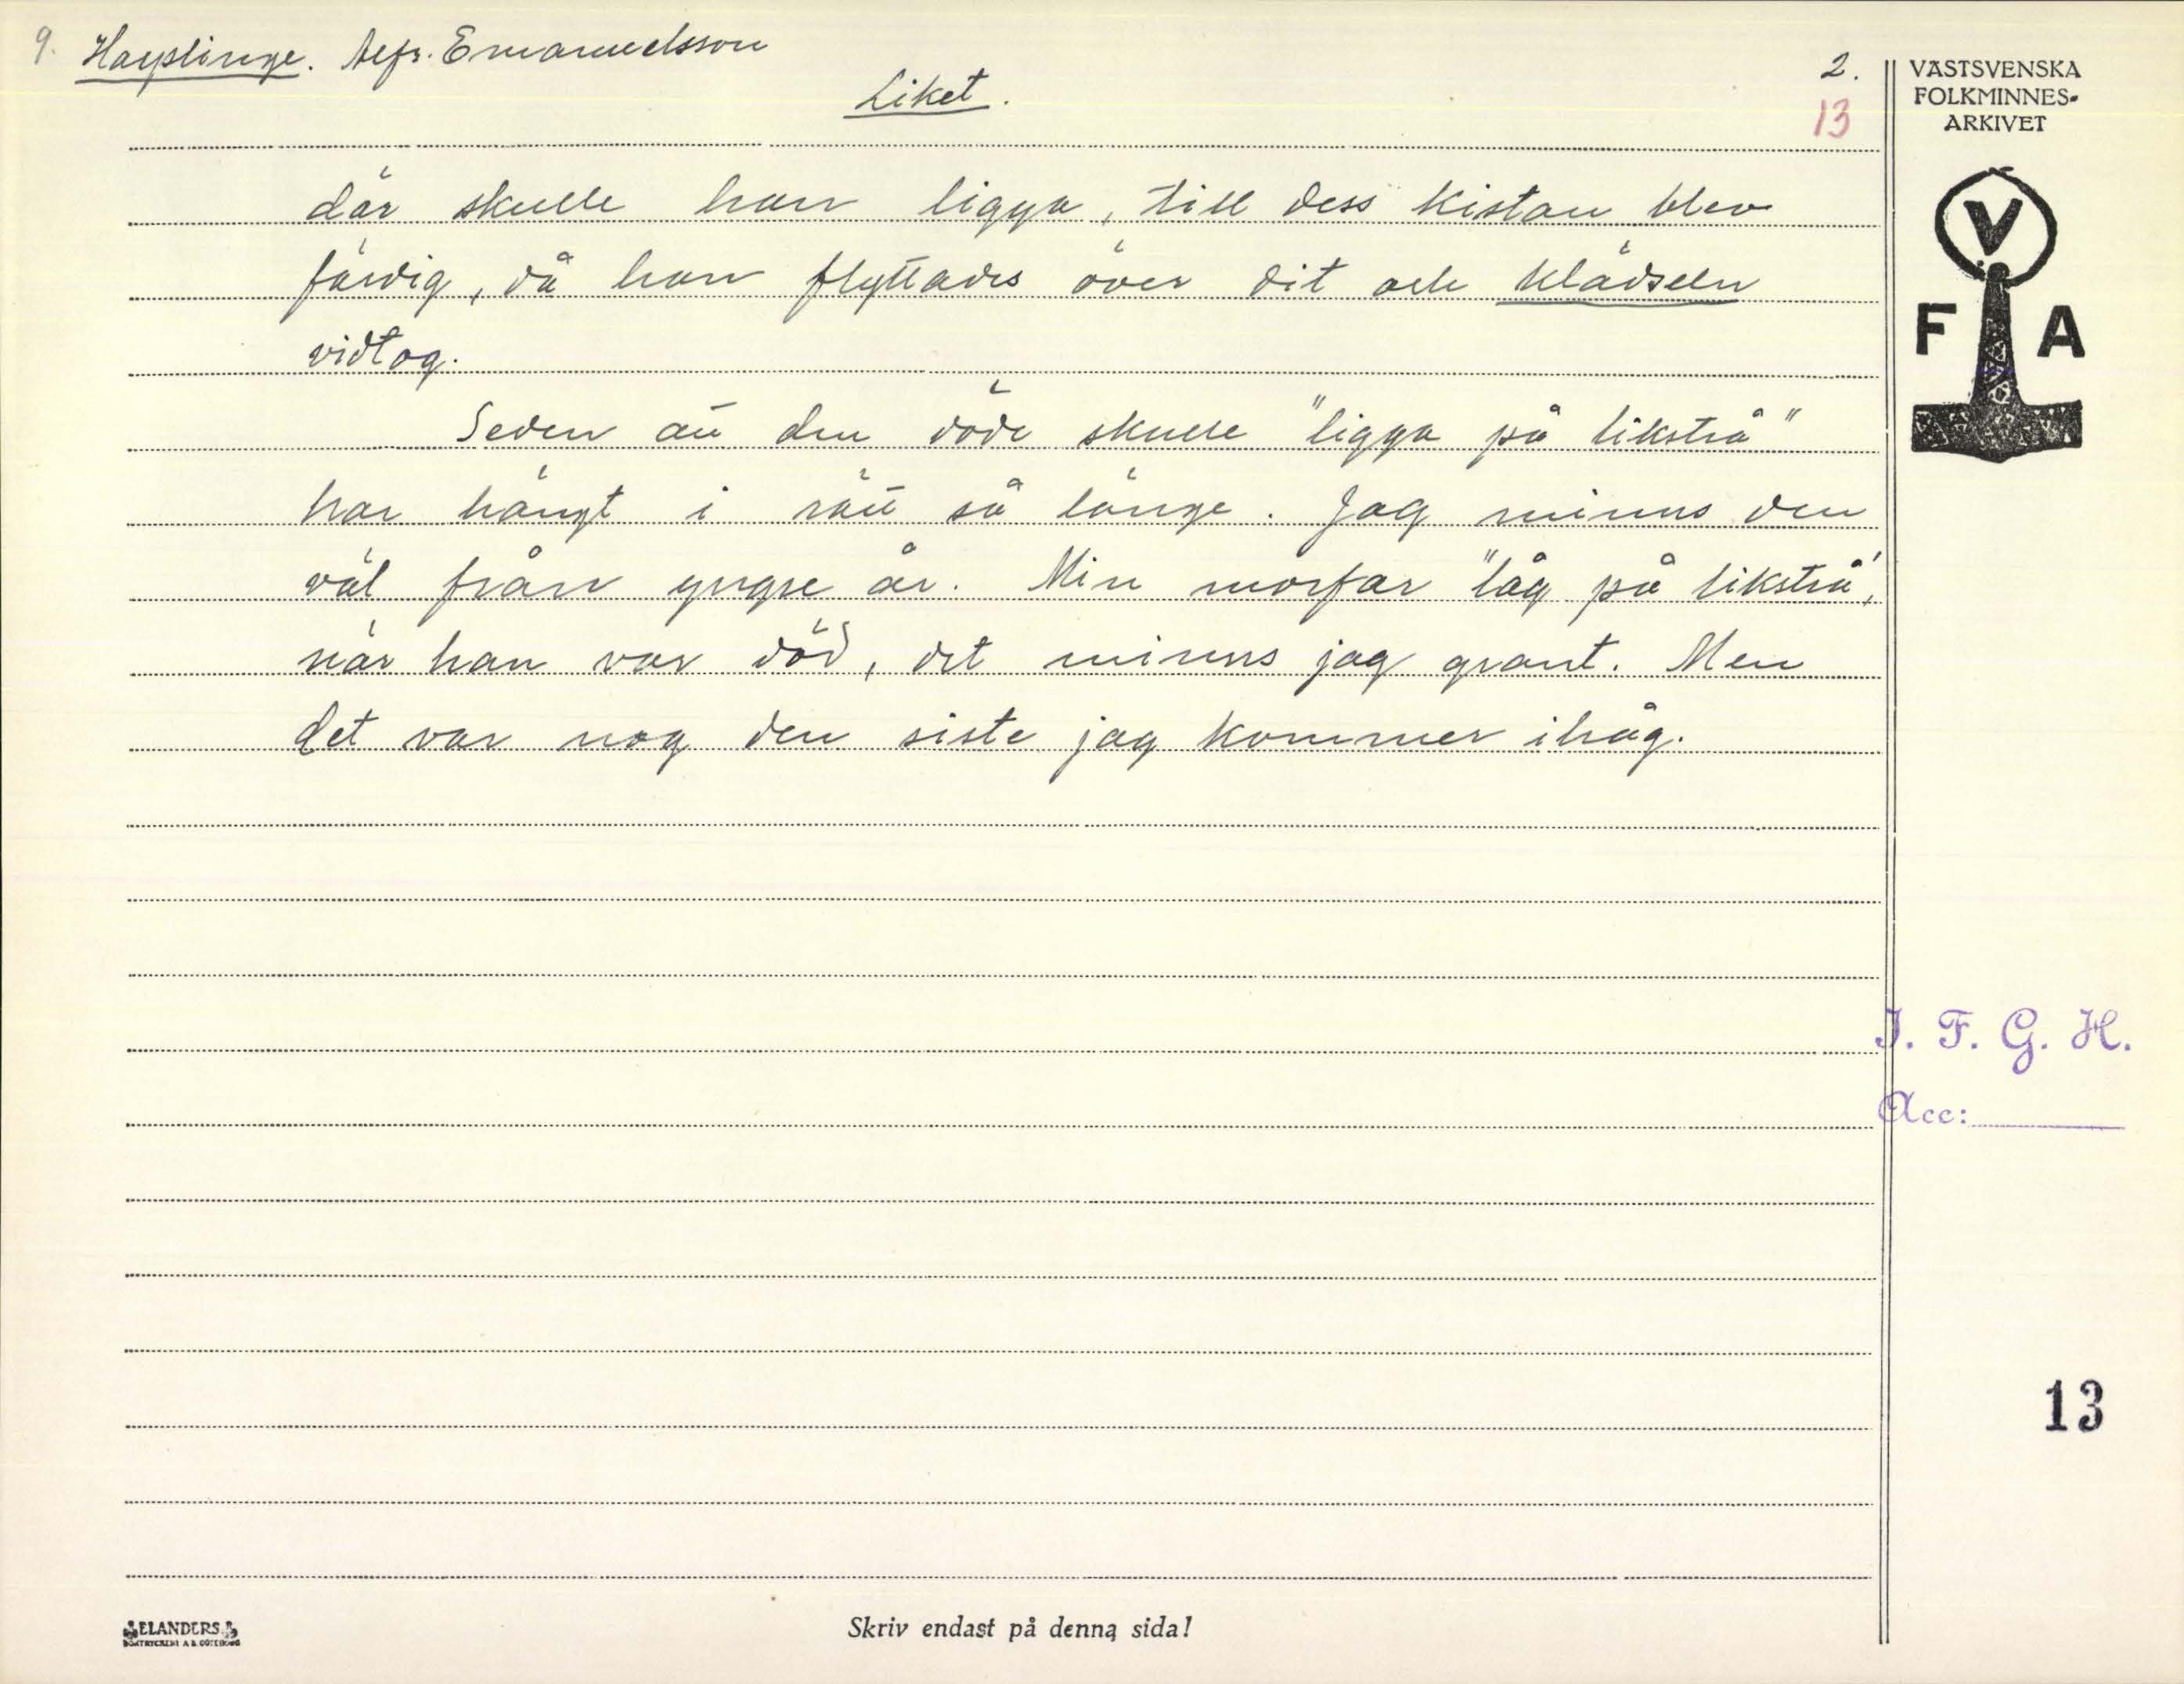 9. Harplinge. Alfr. Emanuelsson
Liket.
2.
13
VÄSTSVENSKA
FOLKMINNES-
ARKIVET
V
F A
där skulle han ligga, till dess kistan blev
färdig, då han flyttades över dit och klädseln
vidtog.
Seden att den döde skulle "ligga på likstrå"
har hängt i rätt så länge. Jag minns den
väl från yngre år. Min morfar "låg på likstrå",
när han var död, det minns jag grant. Men
det var nog den siste jag kommer ihåg.
I. F. G. H.
Acc:
13
ELANDERS
BOKTRYCKERI A.B. GÖTEBORG
Skriv endast på denna sida!